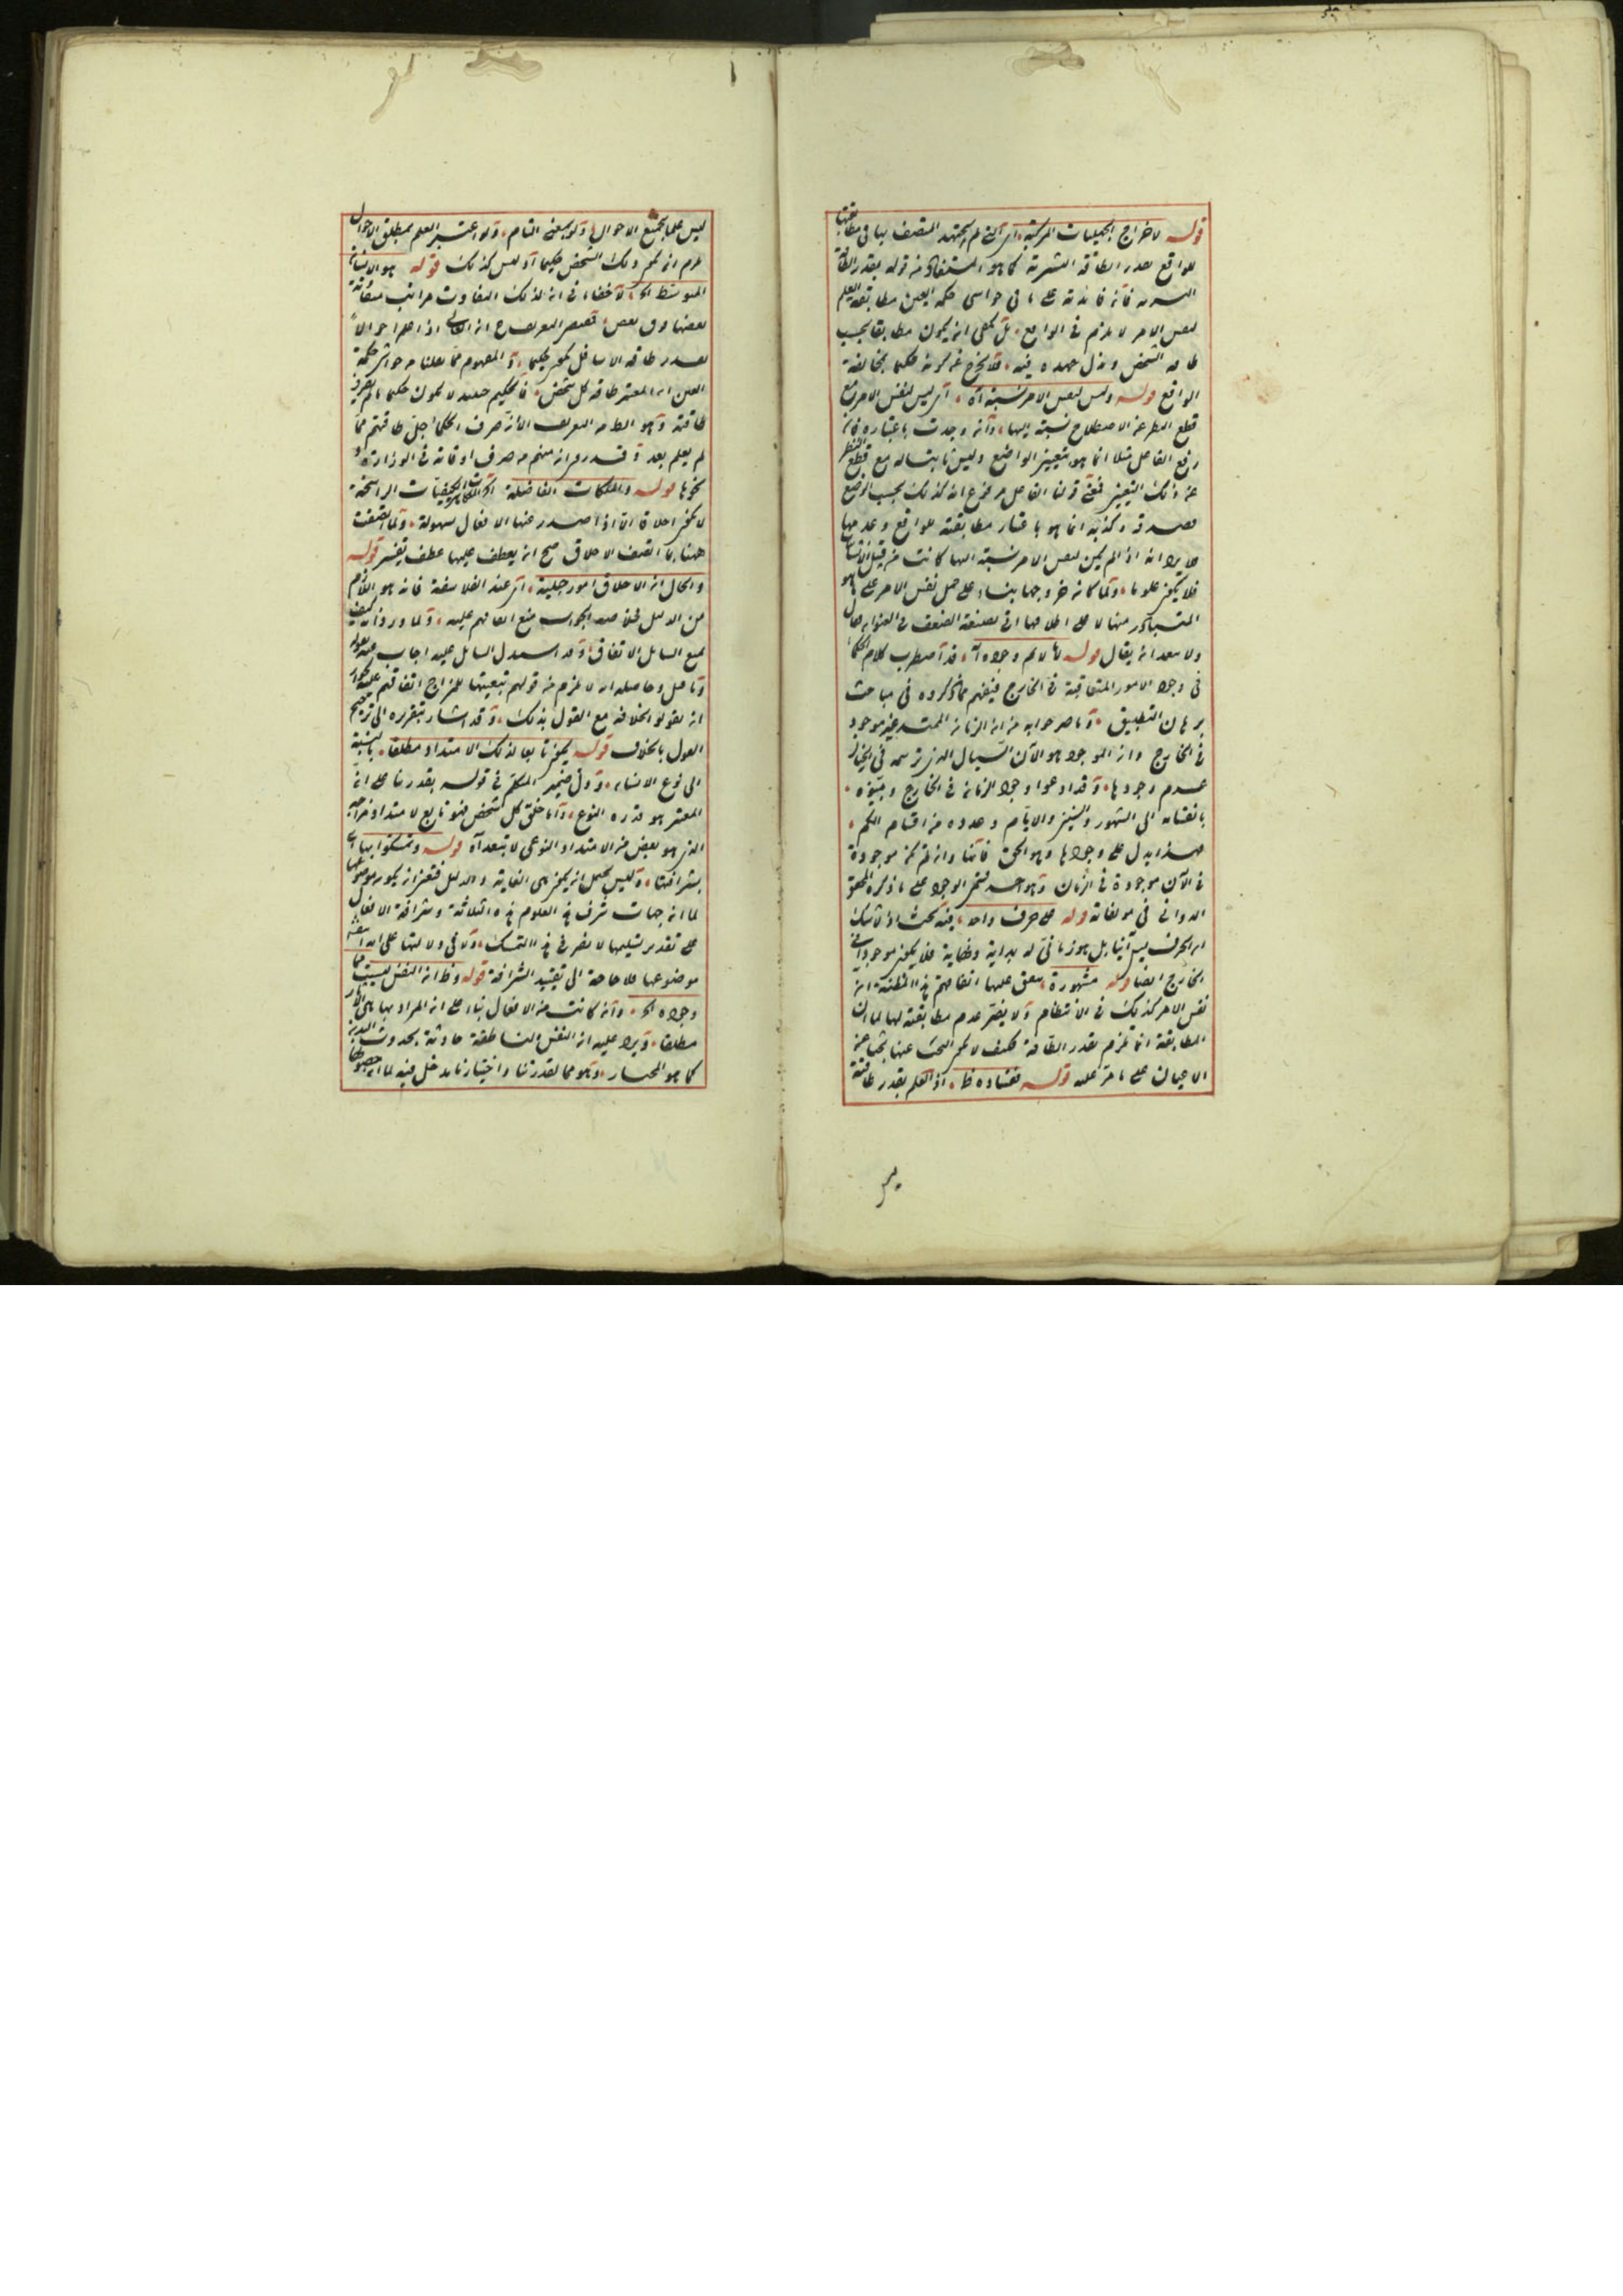 قوله لاخراج الجهليات المركبة اى التى لم يجتهد المتصف بها فى مطابقتها
للواقع بقدر الطاقة البشرية كما هو المستفاد من قوله بقدر الطاقة
البشرية فانه فائدته على ما فى حواشى حكمة العين مطابقة العلم
لنفس الامر لا يلزم فى الواقع بل يكفى ان يكون مطابقا بحسب
طاقة الشخص وبذل جهده فيه فلا يخرج عن كونه حكيما بمخالفة
الواقع قوله وليس لنفس الامر نسبة اه اى ليس لنفس الامر مع
قطع النظر عن الاصطلاح نسبة اليها وان وجدت باعتباره فان
رفع الفاعل مثلا انما هو بتعيين الواضع وليس ثابتا له مع قطع النظر
عن ذلك التعيين فمعنى قولنا الفاعل مرفوع انه كذلك بحسب الوضع
فصدقه وكذبه انما هو باعتبار مطابقته للواقع وعدمها
فلا يرد انه اذا لم يكن لنفس الامر نسبة اليها كانت من قبيل الانشاء
فلا يكون علوما ولما كان خروجها بناء على حمل نفس الامر على ما هو
المتبادر منها لا على اطلاقها اتى بصيغة الضعف فى العنوان قال
ولا يبعد ان يقال قوله لما لا يتم وجوده اه قد اضطرب كلام الحكماء
فى وجود الامور المتعاقبة فى الخارج فيفهم مما ذكروه فى مباحث
برهان التطبيق وما صرحوا به من ان الزمان الممتد غير موجود
فى الخارج وان الموجود هو الآن السيال الذى يرتسم فى الخيال
عدم وجودها وقد ادعوا وجود الزمان فى الخارج وبينوه
بانقسامه الى الشهور والسنين والايام وعدوه من اقسام الكم
فهذا يدل على وجودها وهو الحق فانها وان لم تكن موجودة
فى الآن موجودة فى الزمان وهو احد قسمى الوجود على ما ذكره المحقق
الدوانى فى مؤلفاته قوله على حرف واحد فيه بحث اذ لا شك
ان الحرف ليس آنيا بل هو زمانى له بداية ونهاية فلا يكون موجودا فى
الخارج ايضا قوله مشهورة متفق عليها اتفاقهم فى المظنة ان
نفس الامر كذلك فى الانتظام ولا يضر عدم مطابقته لها لما ان
المطابقة انما تلزم بقدر الطاقة فكيف لا يكون البحث عنها بحثا عن
الاعيان على ما مر عليه قوله ففساده ظ اذ العلم بقدر طاقته
ليس
ليس علما بجميع الاحوال ولو بمعنى التام ولو اعتبر العلم بمطلق الاحوال
لزم ان يكون ذلك الشخص حكيما اذ ليس كذلك قوله هو الانسان
المتوسط الخ لا خفاء فى ان لذلك التفاوت مراتب متفاوتة
بعضها فوق بعض فيصير التعريف ح ان العالى اذا علم احوالا
بقدر طاقة الاسافل يكون حكيما والمفهوم مما نقلنا من حواشى حكمة
العين ان المعتبر طاقة كل شخص فالحكيم حينئذ لا يكون حكيما ما لم يصرف
طاقته وهو الظ من التعريف الا انه صرف الحكماء جل طاقتهم مما
لم يعلم بعد وقد روى ان منهم من صرف اوقاته فى الوزارة او
نحوها قوله والملكات الفاضلة اى الملكات الكيفيات الراسخة
لا تكون اخلاقا الا اذا صدر عنها الافعال بسهولة ولما اتصفت
ههنا بما اتصف الاخلاق صح ان يعطف عليها عطف تفسير قوله
والحال ان الاخلاق امور جبلية اى عند الفلاسفة فانه هو اللازم
من الدليل فخلاصة الجواب منع اتفاقهم عليه ولما ورد انه كيف
يمنع السائل الاتفاق وقد استدل السائل عليه اجاب عنه بقوله
وتأمل وحاصله انه لا يلزم من قولهم بتبعيتها للمزاج اتفاقهم عليه لجواز
ان يقولوا بخلافه مع القول بذلك وقد اشار بتقريره الى ترجيح
القول بالخلاف قوله يكون تابعا لذلك الامتداد مطلقا بالنسبة
الى نوع الانسان ودل ضمير المتكلم فى قوله بقدرتنا على انه
المعتبر هو قدرة النوع واما خلق كل شخص فهو تابع لامتداد مزاجه
الذى هو بعض من الامتداد النوعى لا بتعداه قوله وتمسكوا بها اى
بشرافتها وليس يحتمل ان يكون هى الغاية والدليل فتعين ان يكون موضوعها
لما ان جهات شرف فى العلوم هذه الثلاثة وشرافة الافعال
على تقدير تسليمها لا يضر فى هذا التمسك ولا فى دلالتها على ان
موضوعها فلا حاجة الى تقييد الشرافة قوله وظ ان النفس ليست مما
وجوده الخ وان كانت من الافعال بناء على ان المراد بها هى الآثار
مطلقا ويرد عليه ان النفس الناطقة حادثة بحدوث البدن
كما هو المختار وهو مما لقدرتنا واختيارنا مدخل فيه لما ان حصولها